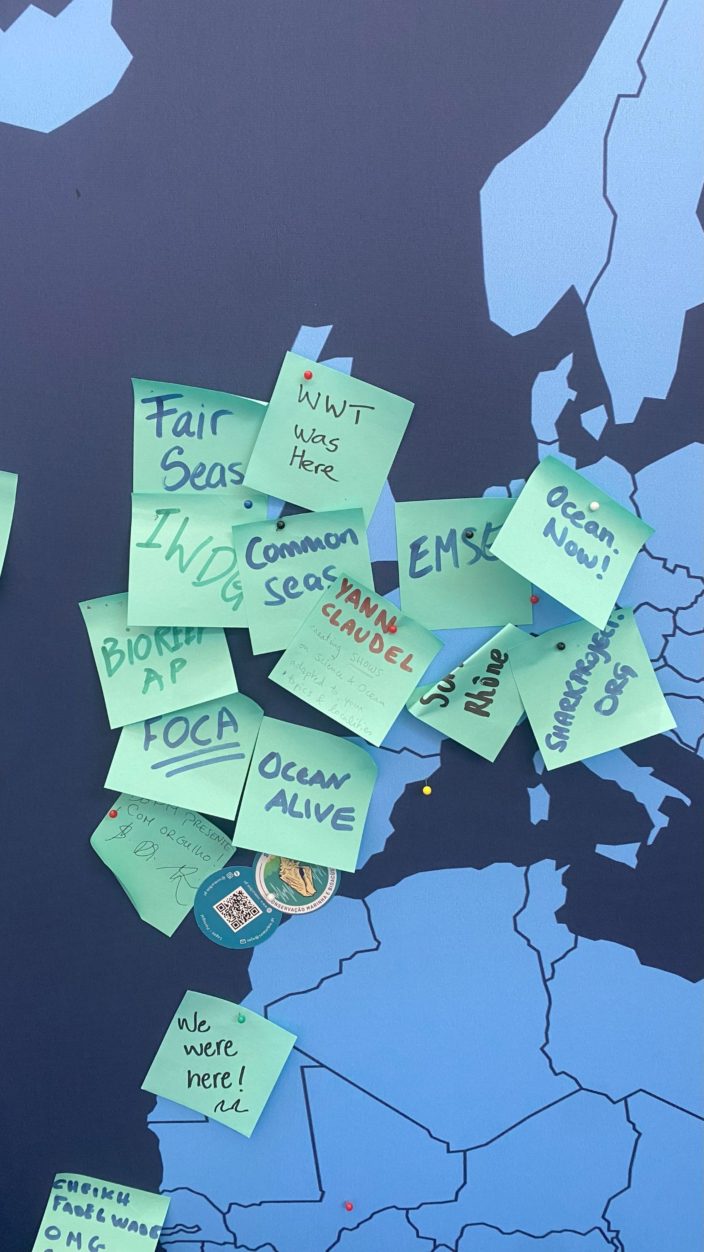 Fair
Seas
WWT
was
Here
IWDG
Common
Seas
EMSE
Ocean.
Now!
YANN
CLAUDEL
creating SHOWS
on Science & Ocean
adapted to your
topics & localities
BIOREEF
AP
Rhône
SHARKPROJECT.
ORG
FOCA
OCEAN
ALIVE
PRESENTE
COM ORGULHO!
CONSERVAÇÃO MARINHA E
We
were
here!
CHEIKH
FADEL WADE
OMG